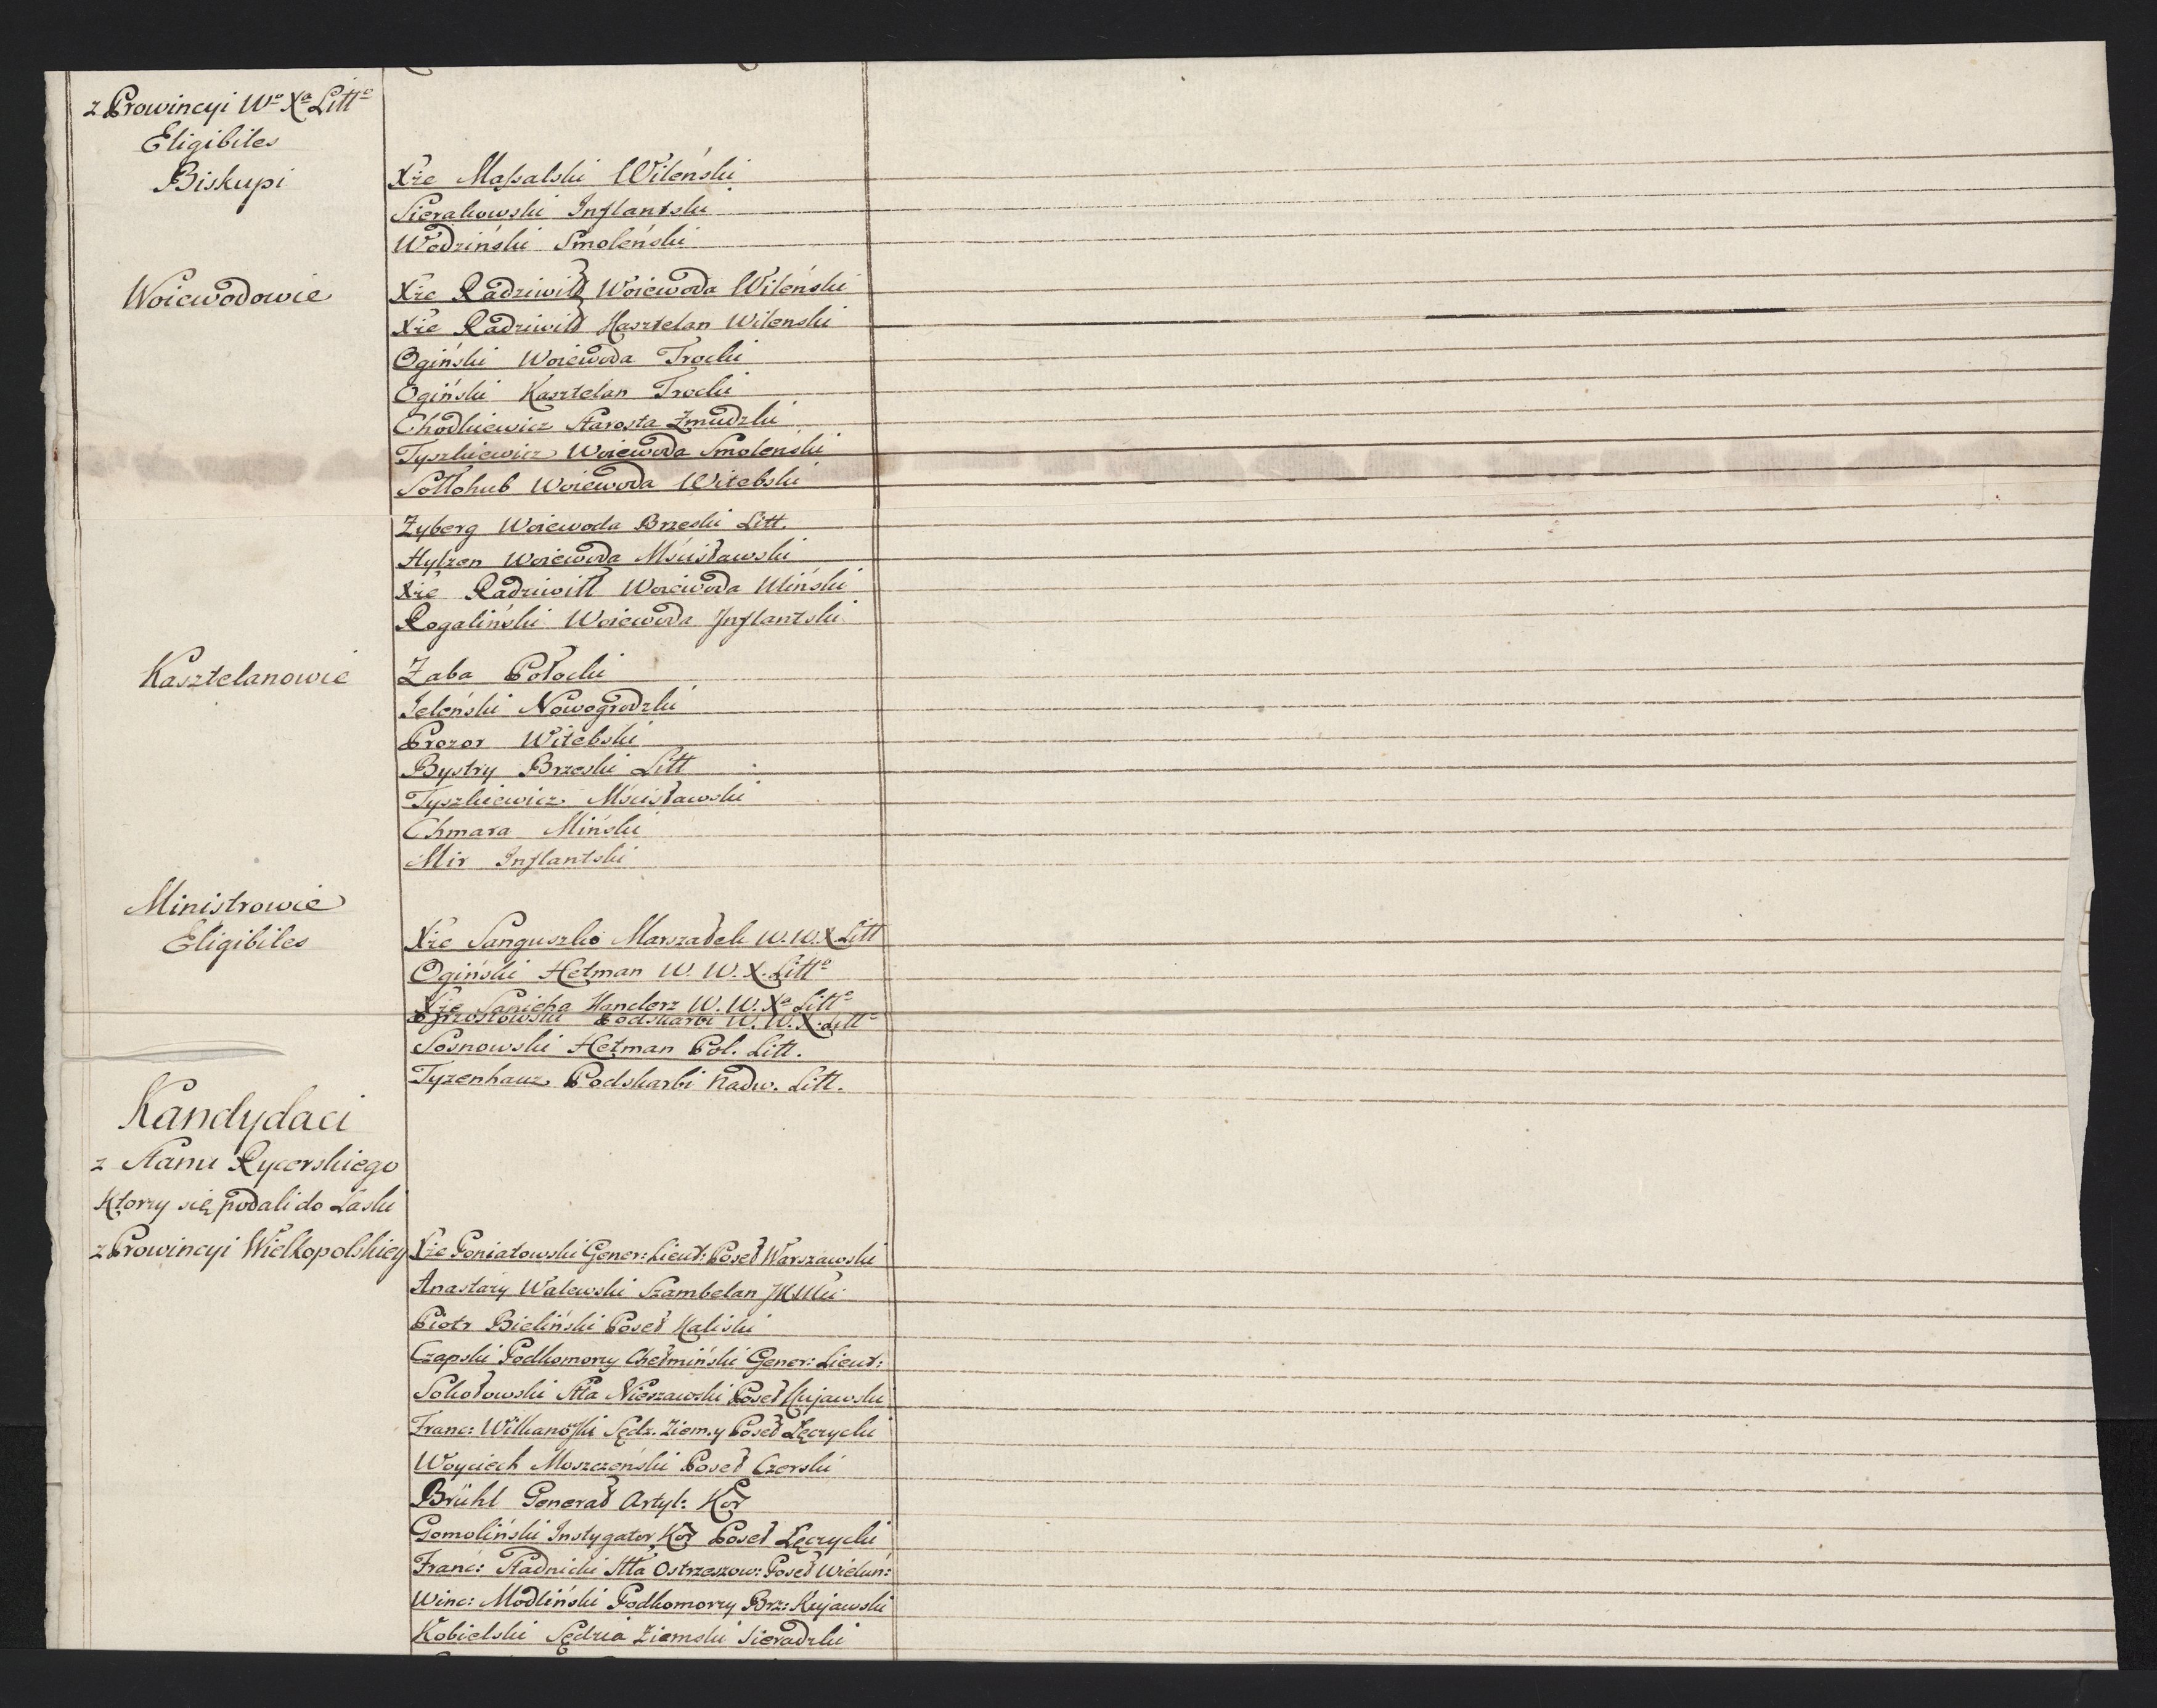 z Prowincyi Wo Xa Litto
Eligibiles
Biskupi
Xże Massalski Wileński
Sierakowski Inflantski
Wodziński Smoleński
Woiewodowie
Xże Radziwiłł Woiewoda Wileński
Xże Radziwiłł Kasztelan Wilenski
Ogiński Woiewoda Trocki
Ogiński Kasztelan Trocki
Chodkiewicz Starosta Zmudzki
Tyszkiewicz Woiewoda Smoleński
Sołłohub Woiewoda Witebski
Zyberg Woiewoda Brzeski Litt.
Hylzen Woiewoda Mścisławski
Xże Radziwiłł Woiewoda Miński
Rogaliński Woiewoda Inflantski
Kasztelanowie
Zaba Połocki
Jeleński Nowogrodzki
Prozor Witebski
Bystry Brzeski Litt
Tyszkiewicz Mścisławski
Chmara Miński
Mir Inflantski
Ministrowie
Eligibiles
Xże Sanguszko Marszałek W. W. X Litt
Ogiński Hetman W. W. X. Litto
Xże Sapieha Kanclerz W. W. Xa Litto
Brzostowski Podskarbi W. W. X. Litto
Sosnowski Hetman Pol. Litt.
Tyzenhauz Podskarbi Nadw. Litt.
Kandydaci
z Stanu Rycerskiego
Ktorzy się podali do Laski
z Prowincyi Wielkopolskiey
Xże Poniatowski Gener: Lieut: Poseł Warszawski
Anastazy Walewski Szambelan JKMci
Piotr Bieliński Poseł Kaliski
Czapski Podkomorzy Chełmiński Gener: Lieut:
Sokołowski Stta Nieszawski Poseł Kujawski
Franc: Wilkanowski Sędz. Ziem.y Poseł Łęczycki
Woyciech Moszczeński Poseł Czerski
Brühl Generał Artyl: Kor
Gomoliński Instygator Kor Poseł Łęczycki
Franc: Stadnicki Stta Ostrzeszow: Poseł Wieluń:
Winc: Modliński Podkomorzy Brz: Kujawski
Kobielski Sędzia Ziemski Sieradzki